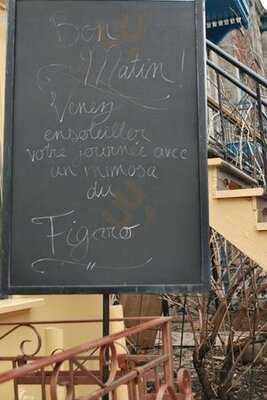 Bon
Matin!
Venez
ensoleiller
votre journée avec
un mimosa
du
Figaro